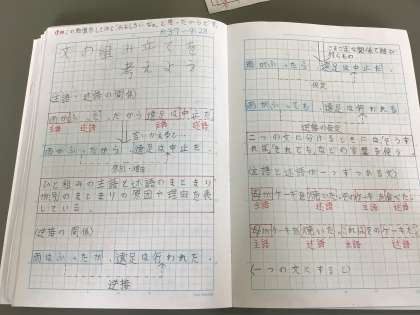 文の組み立てを
考えよう
(主語・述語の関係)
雨がふった。だから遠足は中止だ。
主語 述語 主語 述語
言いかえると
雨がふったから、遠足は中止だ。
原因・理由
ひと組みの主語と述語のまとまり
が別のまとまりの原因や理由を表
している。
(逆接の関係)
雨はふったが、遠足は行われた。
逆接
雨がふったら、遠足は中止だ。
仮定
雨がふっても、遠足は行われる
逆接の仮定
二つの文に分けるときには、そうす
れば、それでも、などの言葉を使う
(主語と述語が一つずつある文)
母がケーキを焼いた。ケーキを食べた。
主語 述語 主語 述語
母がケーキを焼いた。
主語 述語 主語 述語
(一つの文にすると)